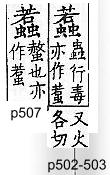 蟲行毒
亦作蠚
又火
各切
螫也亦
作蠚
p507
p502-503